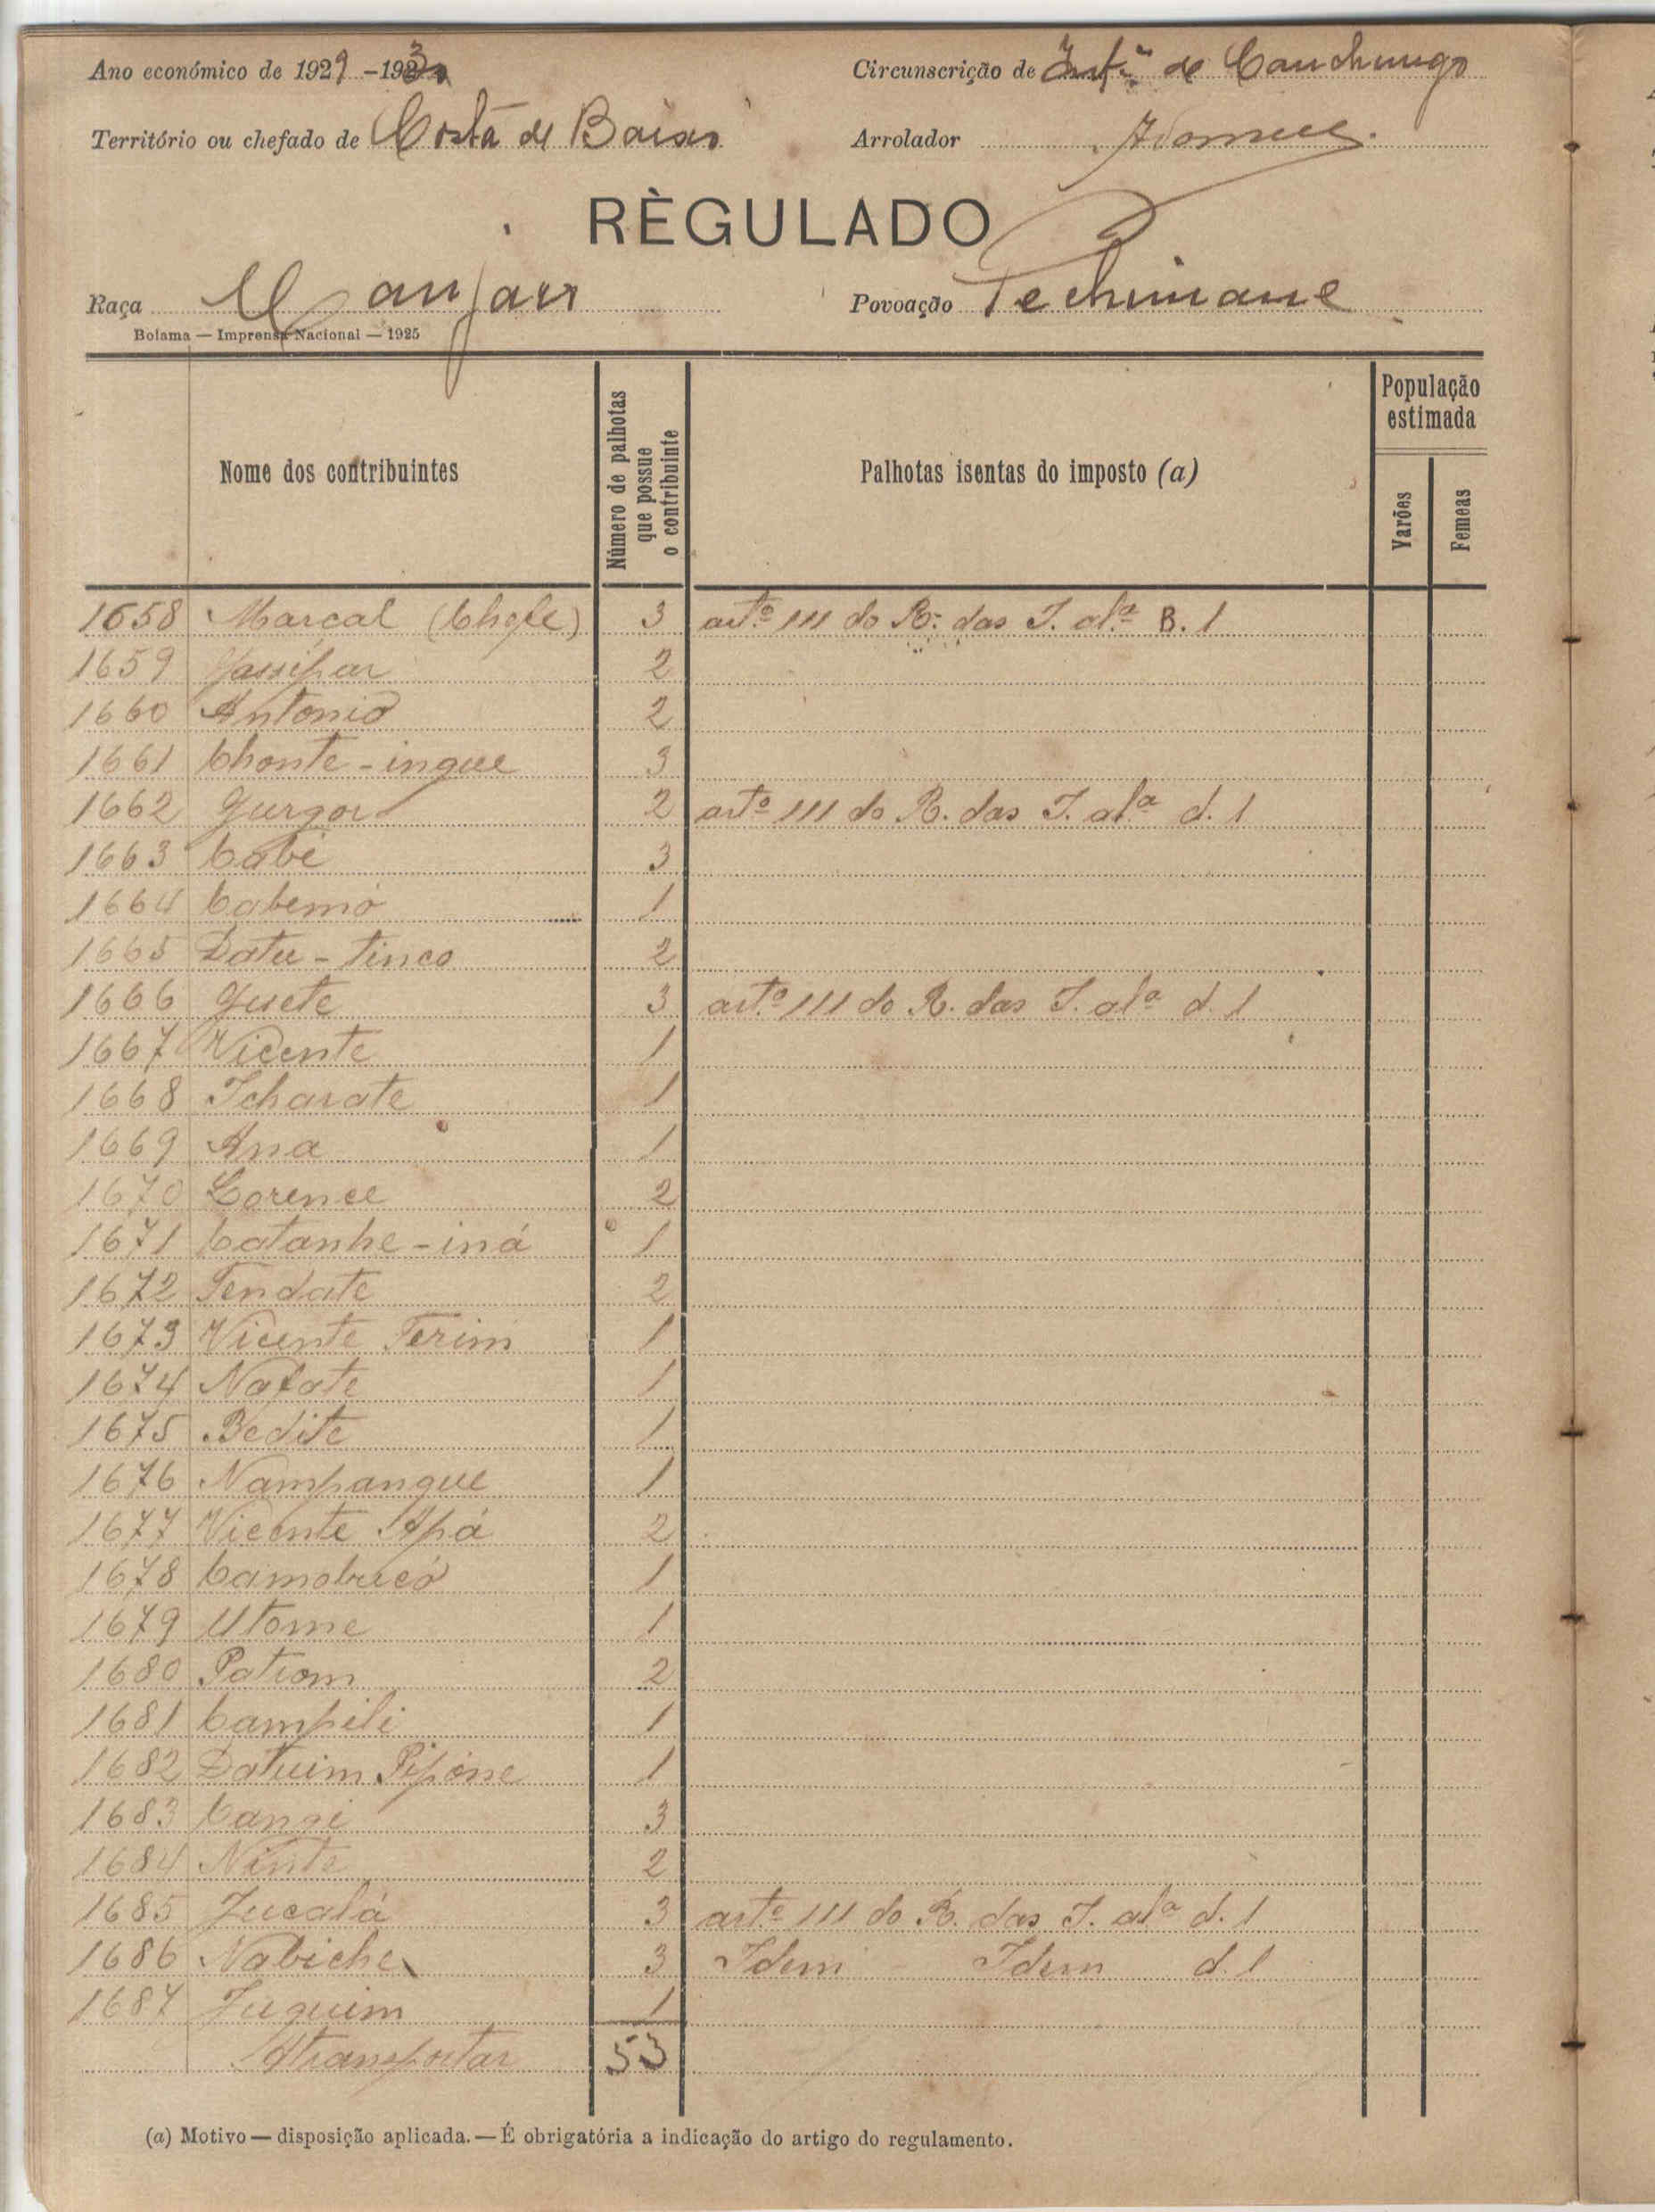 Ano económico de 1929-1930
Circunscrição de de Canchungo
Território ou chefado de Costa de Baixo
Arrolador
RÈGULADO
Raça Manjaca
Povoação Pechimane
Bolama — Imprensa Nacional — 1925
Nome dos contribuintes
Número de palhotas que possue o contribuinte
Palhotas isentas do imposto (a)
População estimada
Varões
Femeas
1658 Marcal (Chefe) 3 artº 111 do R. das I. alª B. 1
1659 2
1660 Antonio 2
1661 Chonte-ingue 3
1662 Gurgor 2 artº 111 do R. das I. alª d. 1
1663 Cabi 3
1664 Cabemó 1
1665 Datu-tinco 2
1666 Guete 3 artº 111 do R. das I. alª d. 1
1667 Vicente 1
1668 Icharate 1
1669 Ana 1
1670 Lorence 2
1671 Catanhe-iná 1
1672 Tendate 2
1673 Vicente Terim 1
1674 Nafate 1
1675 Bedite 1
1676 Nampangue 1
1677 Vicente Apá 2
1678 Camobucó 1
1679 Utome 1
1680 Patrom 2
1681 Campili 1
1682 Datuim Pipóne 1
1683 Cangi 3
1684 Ninte 2
1685 Jucalá 3 artº 111 do R. das I. alª d. 1
1686 Nabiche 3 Idem Idem d. 1
1687 Juquim 1
A transportar 53
(a) Motivo — disposição aplicada. — É obrigatória a indicação do artigo do regulamento.